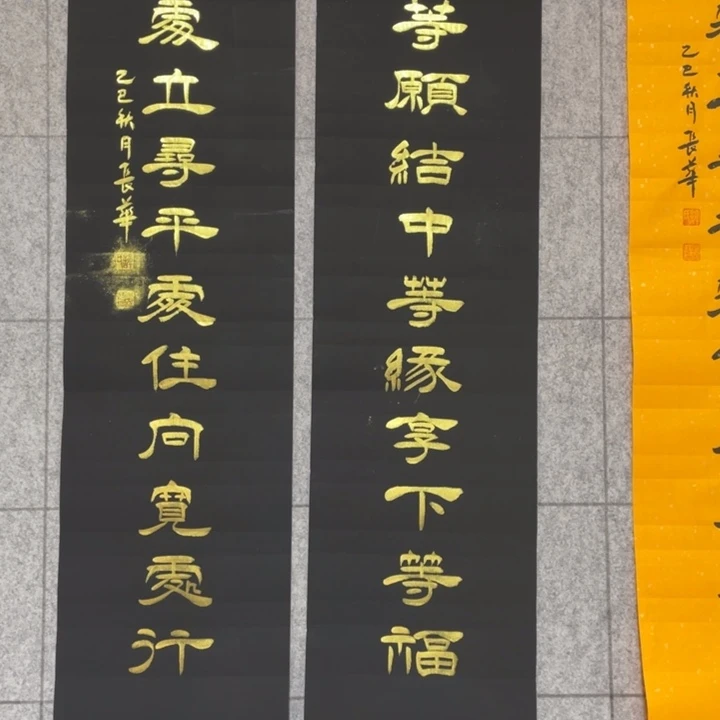 等願結中等緣享下等福
處立尋平處住向寬處行
乙巳秋月長華
乙巳秋月長華